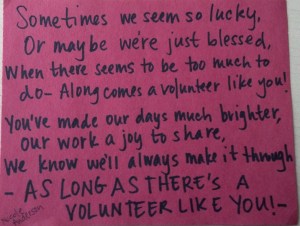 Sometimes we seem so lucky,
Or maybe we're just blessed,
When there seems to be too much to
do- Along comes a volunteer like you!
You've made our days much brighter,
our work a joy to share,
We know we'll always make it through
- AS LONG AS THERE'S A
VOLUNTEER LIKE YOU!-